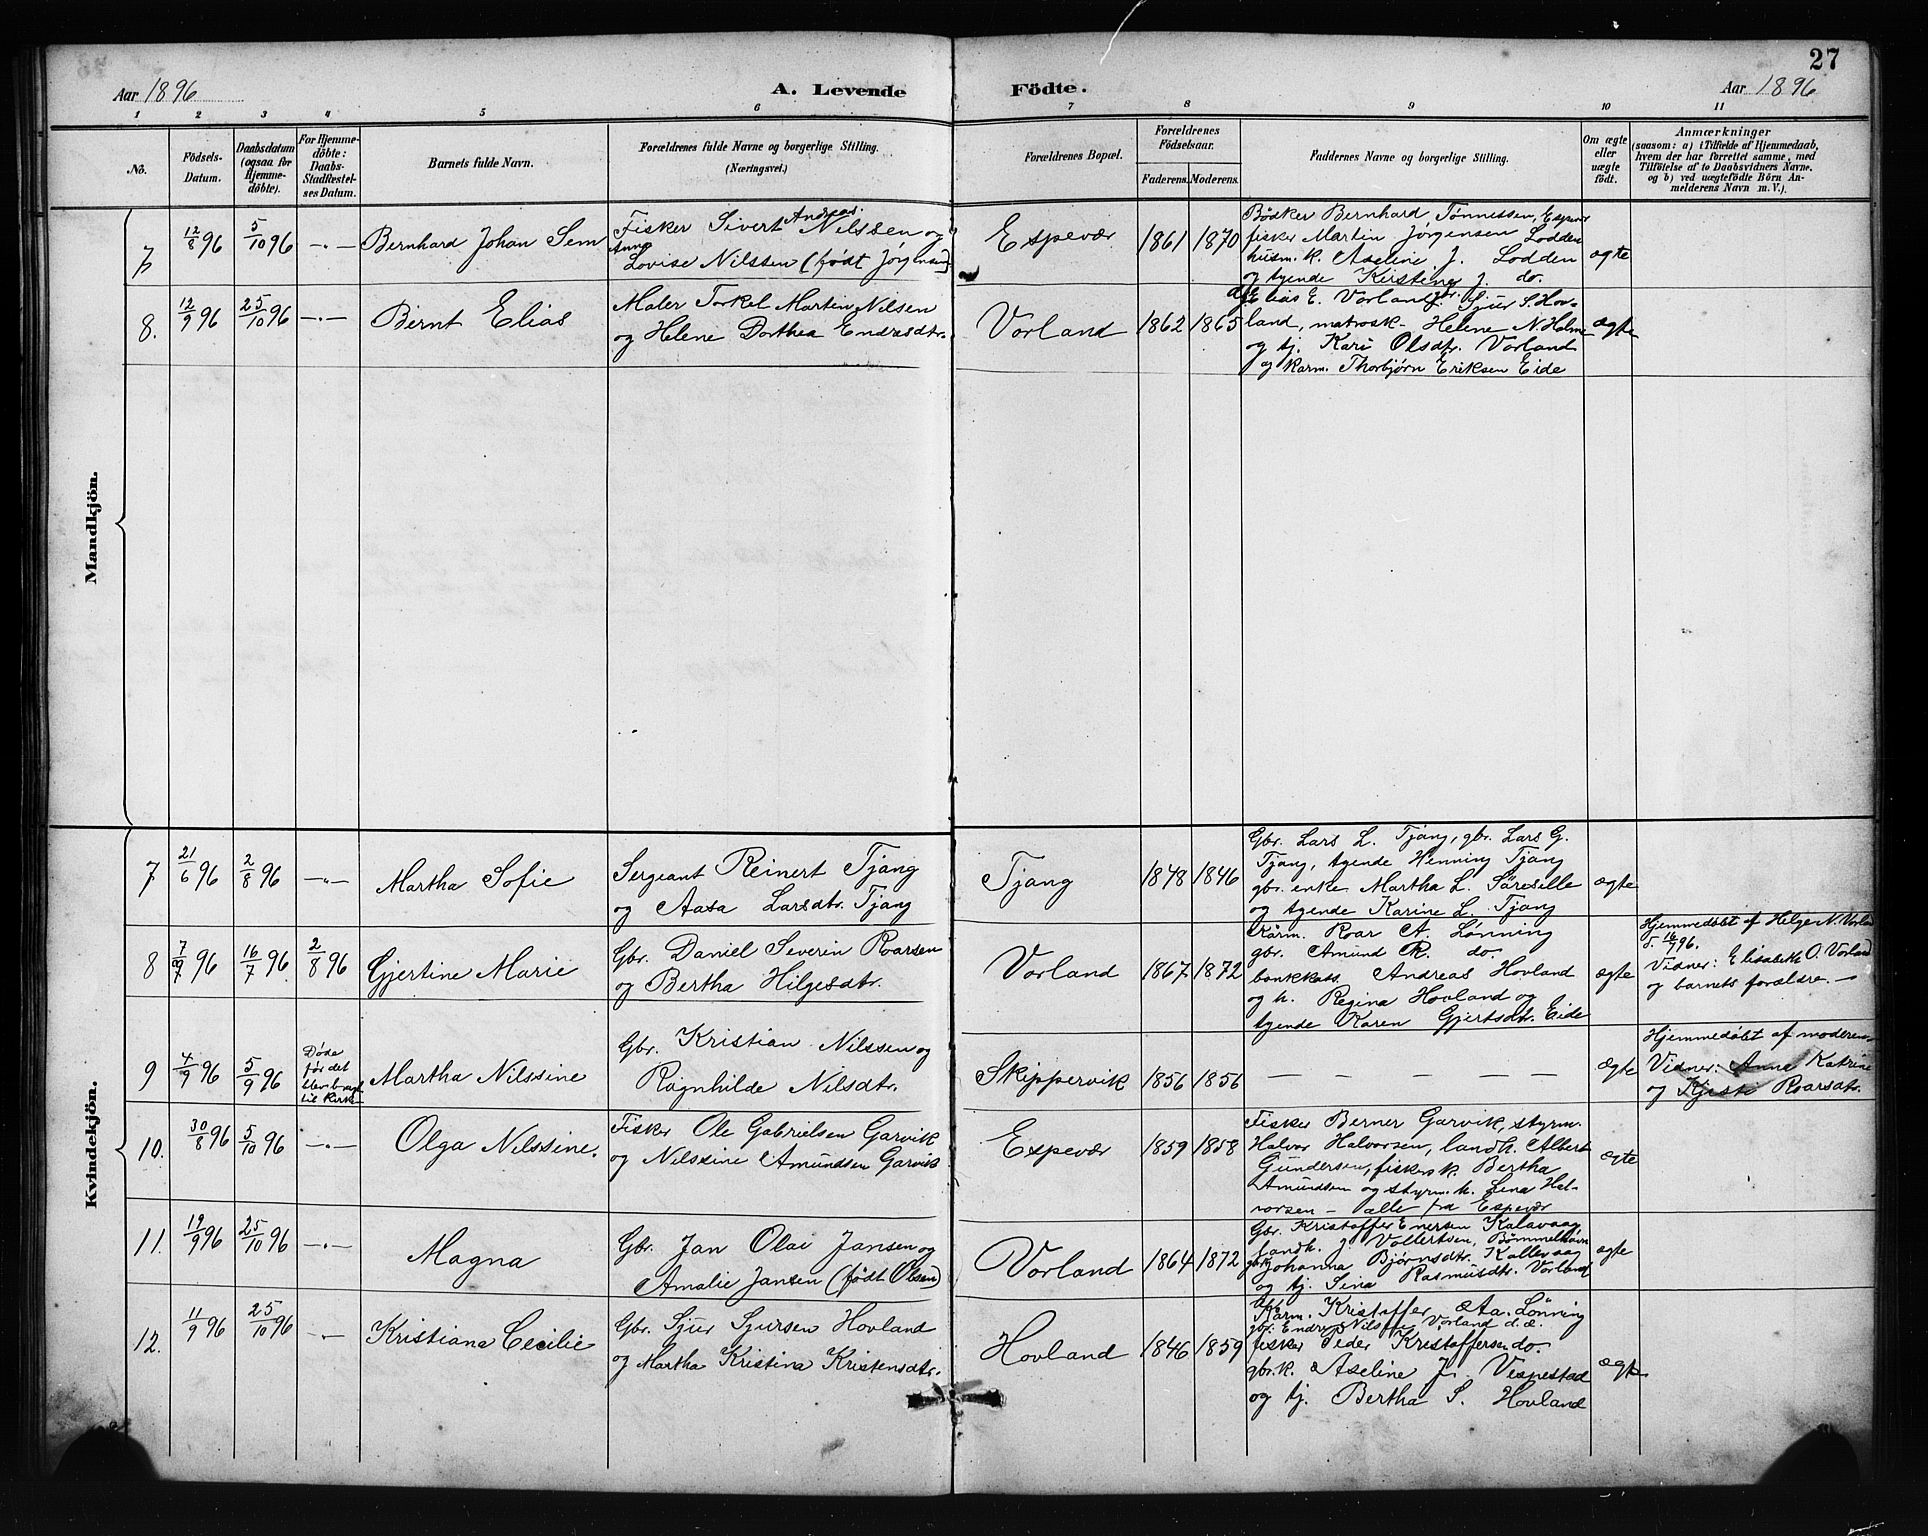 27
Aar 1896 A. Levende Födte. Aar 1896
1 2 3 4 5 6 7 8 9 10 11
No.
Födsels-
Datum.
Daabsdatum
(ogsaa for
Hjemme-
döbte).
For Hjemme-
döbte:
Daabs-
Stadfæstel-
ses Datum.
Barnets fulde Navn.
Forældrenes fulde Navne og borgerlige Stilling.
(Næringsvei.)
Forældrenes Bopæl.
Forældrenes
Födselsaar.
Faderens. Moderens.
Faddernes Navne og borgerlige Stilling.
Om ægte
eller
uægte
födt.
Anmærkninger
(saasom: a) i Tilfælde af Hjemmedaab,
hvem der har forrettet samme, med
Tilföielse af to Daabsvidners Navne.
og b) ved uægtefödte Börn An-
melderens Navn m. V.).
Mandkjön.
7 12/8 96 5/10 96 -„- Bernhard Johan Sem
Fisker Sivert Andreas Nilssen og
Anna Lovise Nilssen (født Jørgensen)
Espevær 1861 1870
Bödker Bernhard Tönnessen, Espevær
fisker Martin Jørgensen Lodden
husm. k. Aseline J. Lodden
og tyende Kirstene J. do.
ægte
8. 12/9 96 25/10 96 -„- Bernt Elias
Maler Torkel Martin Nilsen
og Helene Dorthea Endresdtr.
Vorland 1862 1865
Elias E. Vorland, gbr. Sjur S. Hov-
land, matrosk. Helene N. Holme
og tj. Kari Olsdtr. Vorland
og karm. Thorbjørn Eriksen Eide
ægte
Kvindekjön.
7 21/6 96 2/8 96 -„- Martha Sofie
Sergeant Reinert Tjang
og Aasa Larsdtr. Tjang
Tjang 1848 1846
Gbr. Lars L. Tjang, gbr. Lars G.
Tjang, tyende Henning Tjang
gbr. enke Martha L. Söresille
og tyende Karine L. Tjang
ægte
8 7/7 96 16/7 96 2/8 96 Gjertine Marie
Gbr. Daniel Severin Roarsen
og Bertha Hilgesdtr.
Vorland 1867 1872
Kårm. Roar A. Lønning
gbr. Amund R. do.
bankkass. Andreas Hovland
og h. Regina Hovland og
tyende Karen Gjertsdtr. Eide
ægte
Hjemmedøbt af Helge N. Vorland
d. 16/7 96.
Vidner: Elisabeth O. Vorland
og barnets forældre. —
9 4/9 96 5/9 96
Døde
før det
blev bragt
til Kirke
Martha Nilssine
Gbr. Kristian Nilssen og
Ragnhilde Nilsdtr.
Skippervik 1856 1856 — — — — — ægte
Hjemmedøbt af moderen
Vidner: Anne Katrine
og Kjersti Roarsdtr.
10. 30/8 96 5/10 96 -„- Olga Nilssine.
Fisker Ole Gabrielsen Garvik
og Nilssine Amundsen Garvik
Espevær 1859 1858
Fisker Berner Garvik, styrm.
Halvor Halvorsen, landh. Albert
Gundersen, fiskersk. Bertha
Amundsen og styrm. h. Lena Hal-
vorsen – alle fra Espevær
ægte
11. 19/9 96 25/10 96 -„- Magna
Gbr. Jan Olai Jansen og
Amalie Jansen (født Olsen)
Vorland 1864 1872
Gbr. Kristoffer Enersen Kalavaag
landh. J. Vollertsen, Bömmelhavn
Johanna Bjørnsdtr. Kallevaag
og tj. Sina Rasmusdtr. Vorland
ægte
12. 11/9 96 25/10 96 -„- Kristiana Cecilie
Gbr. Sjur Sjursen Hovland
og Martha Kristina Kristensdtr.
Hovland 1846 1859
Kårm. Kristoffer Aa. Lönning
gbr. Endre Nilssen Vorland d. æ.
fisker Peder Kristoffersen do.
gbr. k. Aseline J. Vespestad
og tj. Bertha S. Hovland
ægte